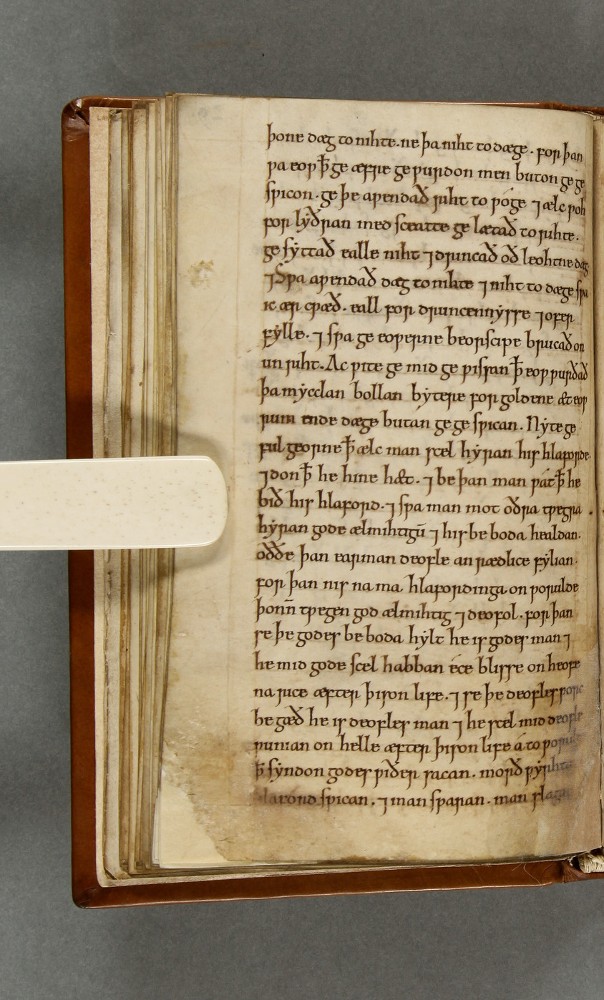 þone dæg to nihte. ne þa niht to dæge. for þan
wa eoƿ ꝥ ge æfre ge ƿurdon men buton ge ge
sƿicon. ge þe aƿendað riht to ƿoge ⁊ ælc ƿoh
for lyðran med sceatte ge lætað to rihte.
ge syttað ealle niht ⁊ drincað oð leohtne dæg
⁊ Sƿa aƿendað dæg to nihte ⁊ niht to dæge sƿa
ic ær cƿæð. eall for druncennysse ⁊ ofer
fylle. ⁊ sƿa ge eoƿerne beorscipe brucað on
un riht. Ac ƿite ge mid ge ƿissan ꝥ eoƿ ƿurðað
þa mycclan bollan bytere for goldene æt eoƿ
rum ende dæge butan ge ge sƿican. Nyte ge
ful georne ꝥ ælc man scel hyran his hlaforde.
⁊ don ꝥ he hine hæt. ⁊ be þan man ƿat ꝥ he
bið his hlaford. ⁊ sƿa man mot oðra tƿegra
hyran gode ælmihtigū ⁊ his be boda healdan.
oððe þan earman deofle an rædlice fylian.
for þan nis na ma hlafordinga on ƿorulde
þonn̄ tƿegen god ælmihtig ⁊ deofol. for þan
se þe godes be boda hylt he is godes man ⁊
he mid gode scel habban éce blisse on heofe
na rice æfter þison life. ⁊ se þe deofles
he gæð he is deofles man ⁊ he scel mid deofle
ƿunian on helle æfter þison life á to
ꝥ syndon godes ƿiðer sacan. morð
sƿican. ⁊ man sƿaran. man